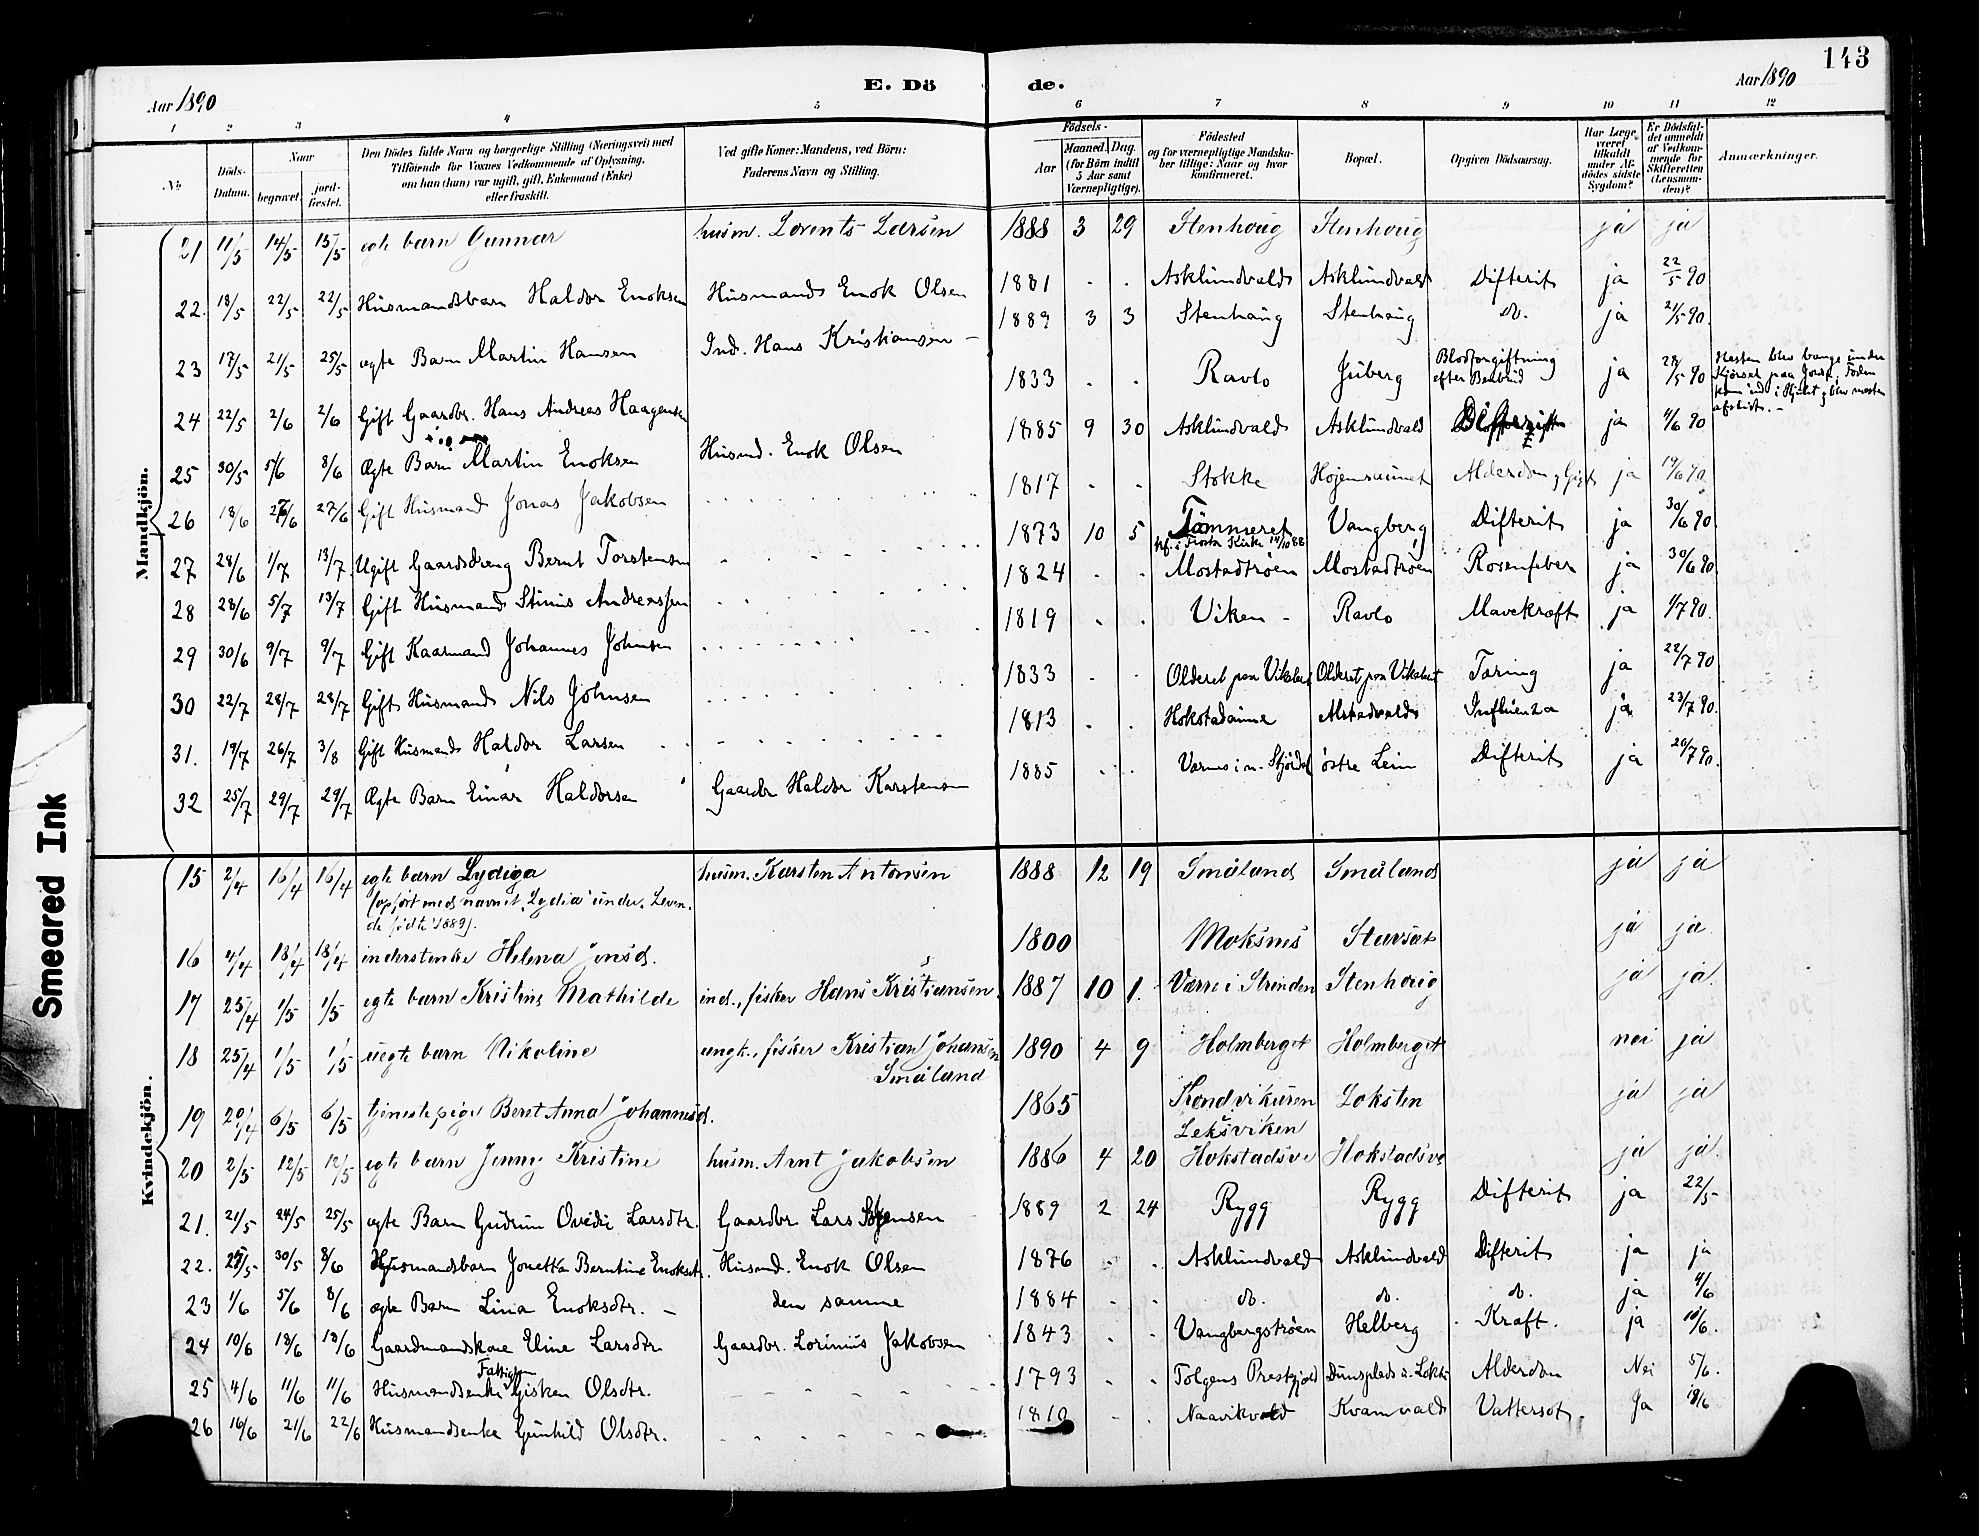 143
Aar 1890 E. Dö de. Aar 1890
1 2 3 4 5 6 7 8 9 10 11 12
No
Döds-Datum.
Naar
begravet.
jord-fæstet.
Den Dödes fulde Navn og borgerlige Stilling (Næringsvei) med
Tilföiende for Voxnes Vedkommende af Oplysning,
om han (hun) var ugift, gift, Enkemand (Enke)
eller fraskilt.
Ved gifte Koner: Mandens, ved Börn:
Faderens Navn og Stilling.
Födsels-
Aar
Maaned. Dag.
(for Börn indtil
5 Aar samt
Værnepligtige).
Födested
og for værnepligtige Mandska-
ber tillige: Naar og hvor
konfirmeret.
Bopæl.
Opgiven Dödsaarsag.
Har Læge
været
tilkaldt
under Af-
dödes sidste
Sygdom?
Er Dödsfal-
det anmeldt
af Vedkom-
mende for
Skifteretten
(Lensman-
den)?
Anmærkninger.
Mandkjön.
21 11/5 14/5 15/5 egte barn Gunnar husm. Lorents Larsen 1888 3 29 Stenhoug Stenhoug ja ja
22. 18/5 22/5 22/5 Husmandsbarn Haldor Enoksen Husmand Enok Olsen 1881 . . Asklundvald Asklundvald Difterit ja 22/5 90
23 17/5 21/5 25/5 ægte Barn Martin Hansen Ind. Hans Kristiansen – 1889 3 3 Stenhaug Stenhaug do. ja 21/5 90.
24 22/5 2/6 2/6 Gift Gaardbr. Hans Andreas Haagensen 1833 . . Ravlo Juberg Blodforgiftning efter Benbrud ja 28/5 90
Hesten blev bange under
Kjörsel paa Jorde, Foden
kom ind i Hjulet, blev næsten
afslidt. –
25 30/5 5/6 8/6 Ægte Barn Martin Enoksen Husmd. Enok Olsen 1885 9 30 Asklundvald Asklundvald Difterit ja 4/6 90
26 18/6 27/6 27/6 Gift Husmand Jonas Jakobsen 1817 . . Stokke Højemsaunet Alderdom, Gigt ja 19/6 90.
27 28/6 1/7 13/7. Ugift Gaardsdreng Bernt Torstensen 1873 10 5 Tömmeret Vangberg Difterit ja 30/6 90
kf. i Frosta Kirke 14/10 88
28 28/6 5/7 13/7 Gift Husmand Stinus Andreassen 1824 . . Mostadtrøen Mostadtrøen Rosenfeber ja 30/6 90.
29 30/6 9/7 9/7 Gift Kaarmand Johannes Johnsen 1819 . . Viken – Ravlo Mavekræft ja 1/7 90.
30 22/7 28/7 28/7 Gift Husmand Nils Johnsen 1833 . . Olderet paa Viktaet Olderet paa Viktaet Tæring ja 22/7 90
31. 19/7 26/7 3/8 Gift Husmand Haldor Larsen 1813 . . Alstadvald Influenza ja 23/7 90.
32 25/7 29/7 29/7 Ægte Barn Einar Haldorsen Gaardbr Haldor Karstensen 1885 . . Værnes i n. Stjördal östre Lein Difterit ja 26/7 90.
Kvindekjön.
15 2/4 16/4 16/4 egte barn Lydiga husm. Karsten Antonsen 1888 12 19 Småland Småland ja ja
(opført med navnet "Lydia" under "Leven-
de fødte" 1889).
16 4/4 18/4 18/4 inderstenke Helena Jonsd. 1800 Moksnes Stavsæt ja ja
17 25/4 1/5 1/5 egte barn Kristine Mathilde ind., fisker Hans Kristiansen 1887 10 1. Værre i Strinden Stenhoug ja ja.
18 25/4 1/5 1/5 uegte barn Nikoline ungk., fisker Kristian Johansen 1890 4 9 Holmberget Holmberget nei ja
Småland
19 20/4 6/5 6/5 tjenestepige Beret Anna Johannesd. 1865 Loksten ja ja
Leksviken
20 2/5 12/5 12/5 egte barn Jenny Kristine husm. Arnt Jakobsen 1886 4 20 Hokstadsve Hokstadsve ja ja.
21. 21/5 24/5 25/5 egte Barn Gudrun Ovedie Larsdtr. Gaardbr Lars 1889 2 24 Rygg Rygg Difterit ja 22/5-
22. 25/5 30/5 8/6 Husmandsbarn Jonetta Berntine Enoksdtr. Husmd. Enok Olsen 1876 . . Asklundvald Asklundvald Difterit ja ja
23 1/6 5/6 8/6 ægte Barn Lina Enoksdtr. – den samme 1884 . . do. do. do. ja 4/6
24 10/6 18/6 18/6 Gaardmandskone Eline Larsdtr Gaardbr. Lorinius Jakobsen 1843 . . Vangbergstrøen Helberg Kræft. ja 10/6.
25 4/6 11/6 11/6 Husmandsenke Fattiglem Gisken Olsdtr. 1793 . . Tolgens Prestgjeld Alderdom Nei 5/6.
26 16/6 21/6 22/6 Husmandsenke Gunhild Olsdtr. 1810 . . Naavikvald Kvamvald Vattersot. Ja 18/6
Smeared Ink